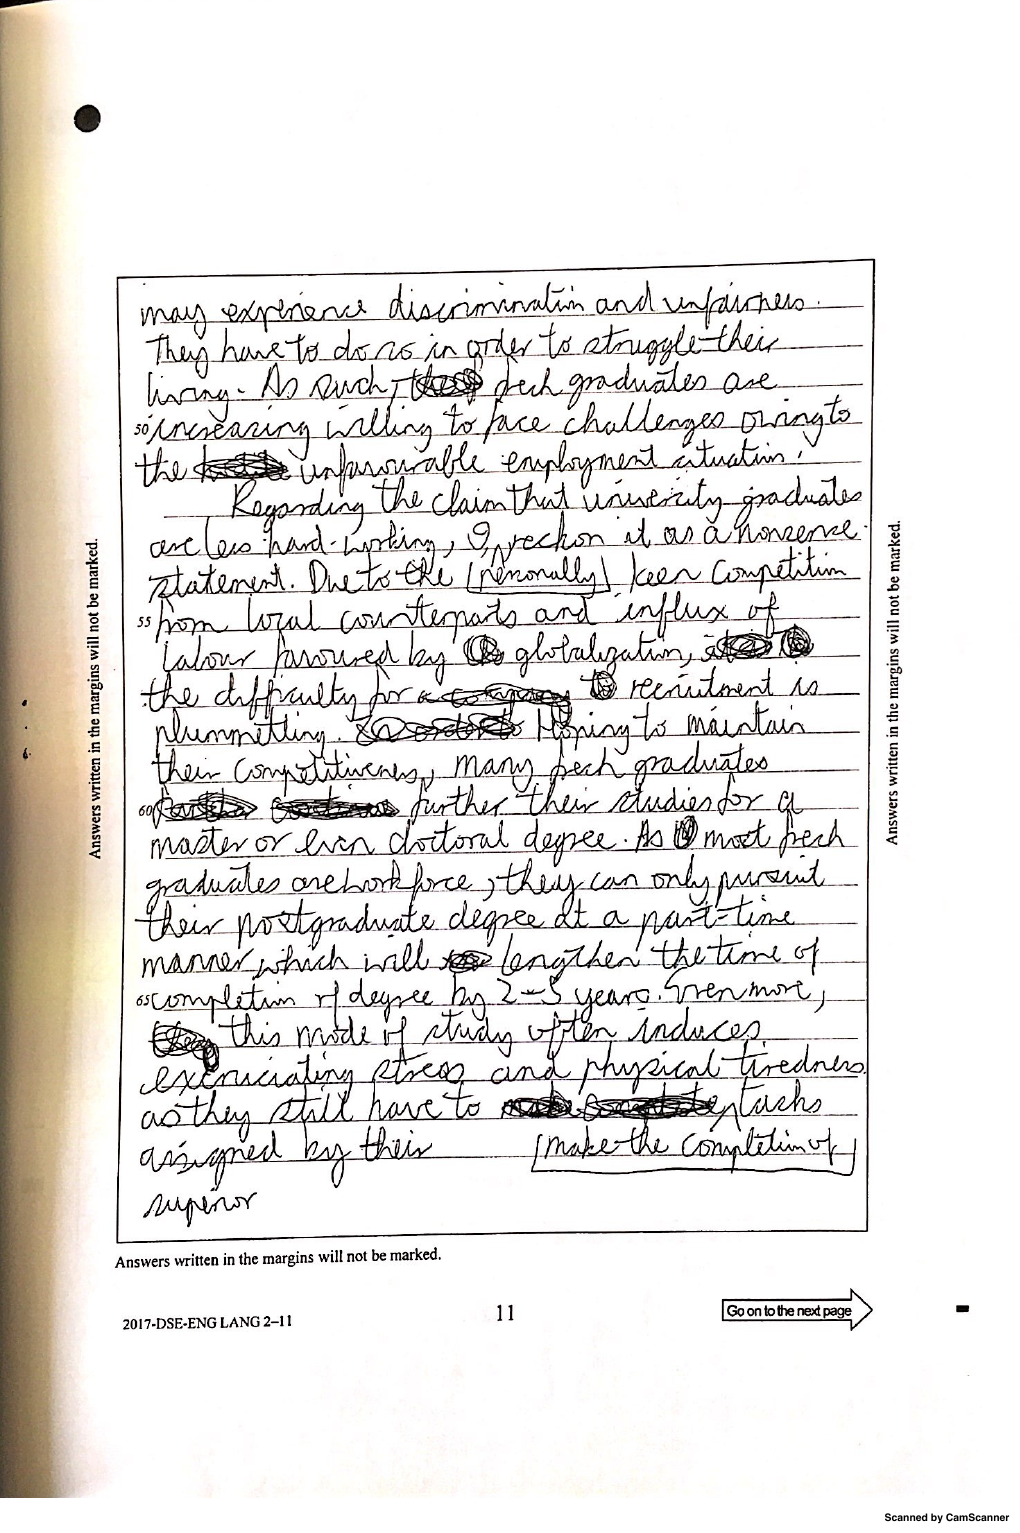 may experience discrimination and unfairness.
They have to do so in order to struggle their
living. As such, fresh graduates are
50 increasing willing to face challenges owing to
the unfavourable employment situation.
Regarding the claim that university graduates
are less hard-working, I reckon it as a nonsense
[personally]
statement. Due to the keen competition
55 from local counterparts and influx of
labour favoured by globalization,
the difficulty for recruitment is
plummetting. Hoping to maintain
their competitiveness, many fresh graduates
60 further their studies for a
master or even doctoral degree. As most fresh
graduates are workforce, they can only pursuit
their postgraduate degree at a part-time
manner, which will lengthen the time of
65 completion of degree by 2-5 years. Even more,
this mode of study often induces
excruciating stress and physical tiredness
as they still have to tasks
assigned by their [make the completion of]
superior
Answers written in the margins will not be marked.
Answers written in the margins will not be marked.
Answers written in the margins will not be marked.
2017-DSE-ENG LANG 2–11
11
Go on to the next page
Scanned by CamScanner